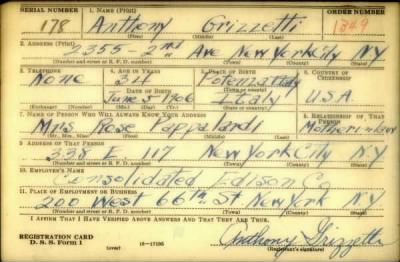 SERIAL NUMBER 1. NAME (Print) ORDER NUMBER
178 Anthony Grizzetti 1349
(First) (Middle) (Last)
2. ADDRESS (Print)
2355-2nd Ave New York City NY
(Number and street or R. F. D. number) (Town) (County) (State)
3. TELEPHONE 4. AGE IN YEARS 5. PLACE OF BIRTH 6. COUNTRY OF CITIZENSHIP
None 34 U.S.A.
DATE OF BIRTH (Town or county)
June 5 1906 Italy
(Exchange) (Number) (Mo.) (Day) (Yr.) (State or country)
7. NAME OF PERSON WHO WILL ALWAYS KNOW YOUR ADDRESS 8. RELATIONSHIP OF THAT PERSON
Mrs Rose Pappalardi Mother in law
(Mr., Mrs., Miss) (First) (Middle) (Last)
9. ADDRESS OF THAT PERSON
338 E 117 New York City NY
(Number and street or R. F. D. number) (Town) (County) (State)
10. EMPLOYER'S NAME
Consolidated Edison Co
11. PLACE OF EMPLOYMENT OR BUSINESS
200 West 66th St New York NY
(Number and street or R. F. D. number) (Town) (County) (State)
I AFFIRM THAT I HAVE VERIFIED ABOVE ANSWERS AND THAT THEY ARE TRUE.
REGISTRATION CARD
D. S. S. Form 1 (over) 16-17105 Anthony Grizzetti
(Registrant's signature)